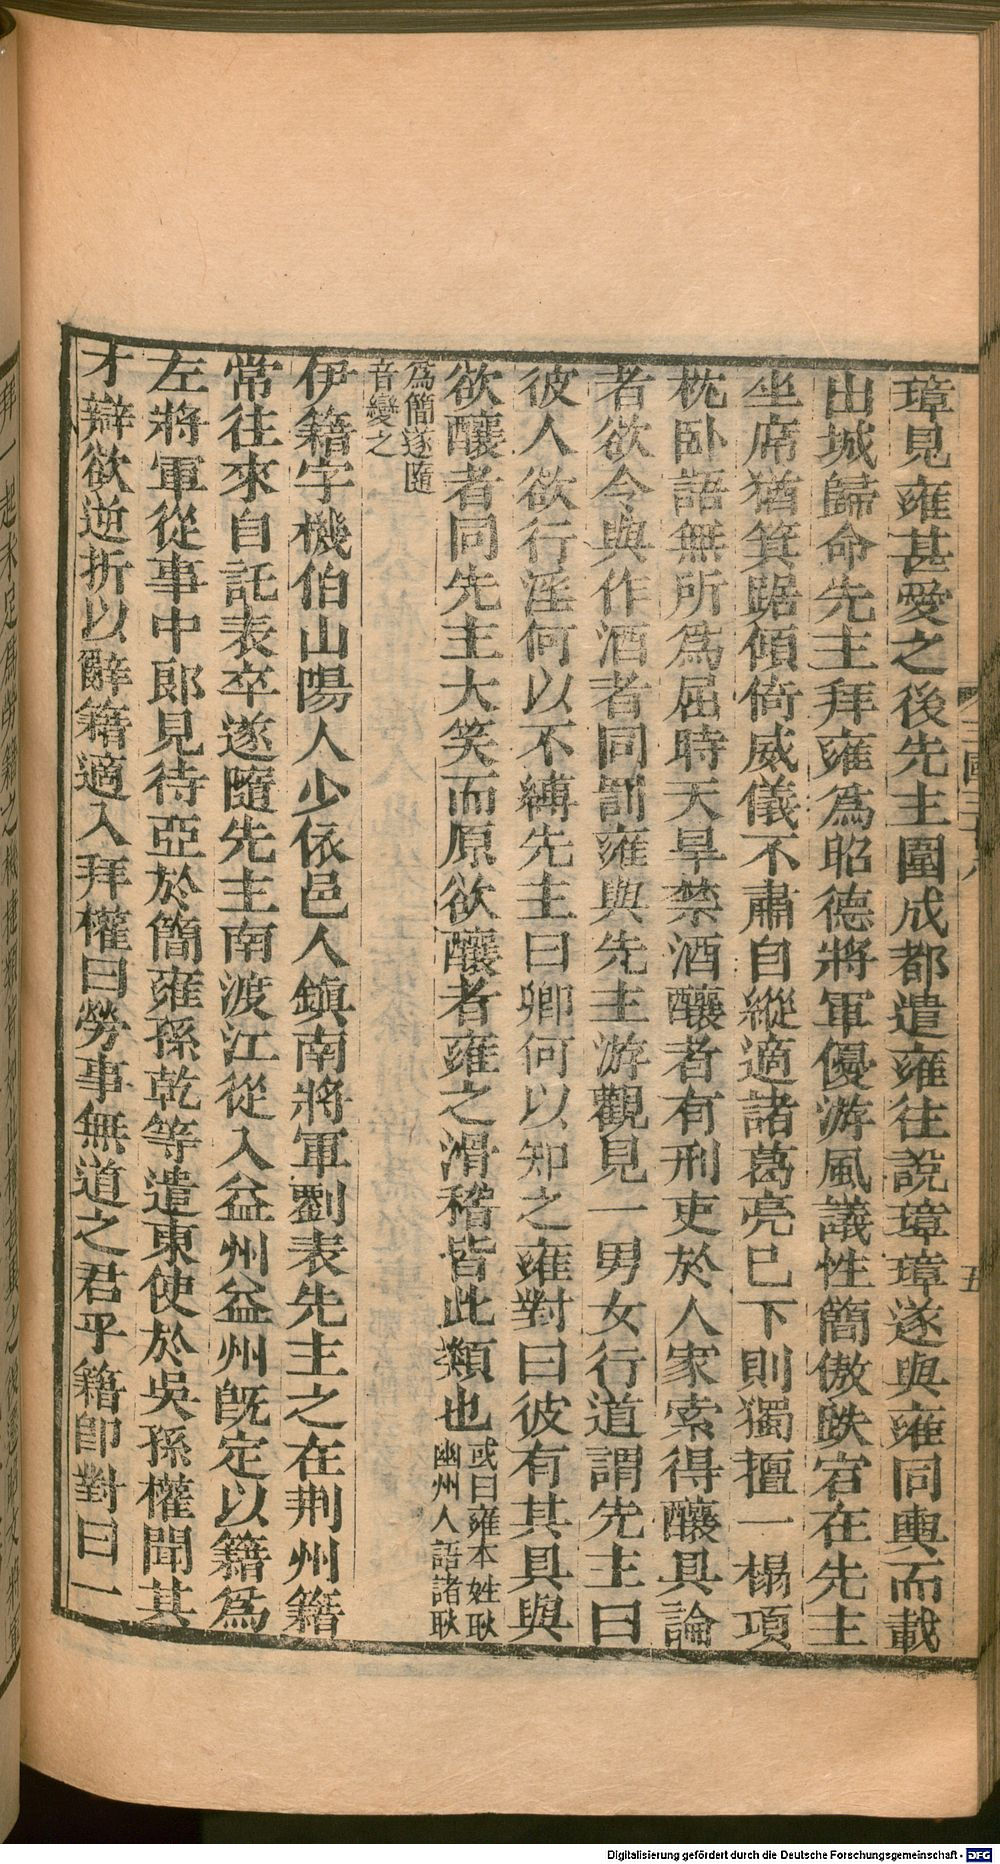 璋見雍甚愛之後先主圍成都遣雍往說璋璋遂與雍同輿而載
出城歸命先主拜雍爲昭德將軍優游風議性簡傲跌宕在先主
坐席猶箕踞傾倚威儀不肅自縱適諸葛亮已下則獨擅一榻項
枕卧語無所爲屈時天旱禁酒釀者有刑吏於人家索得釀具論
者欲令與作酒者同罰雍與先主游觀見一男女行道謂先主曰
彼人欲行淫何以不縛先主曰卿何以知之雍對曰彼有其具與
欲釀者同先主大笑而原欲釀者雍之滑稽皆此類也
或曰雍本姓耿
幽州人語諸耿
爲簡遂隨
音變之
伊籍字機伯山陽人少依邑人鎮南將軍劉表先主之在荆州籍
常往來自託表卒遂隨先主南渡江從入益州益州旣定以籍爲
左將軍從事中郎見待亞於簡雍孫乾等遣東使於吳孫權聞其
才辯欲逆折以辭籍適入拜權曰勞事無道之君乎籍卽對曰一
五
Digitalisierung gefördert durch die Deutsche Forschungsgemeinschaft - DFG